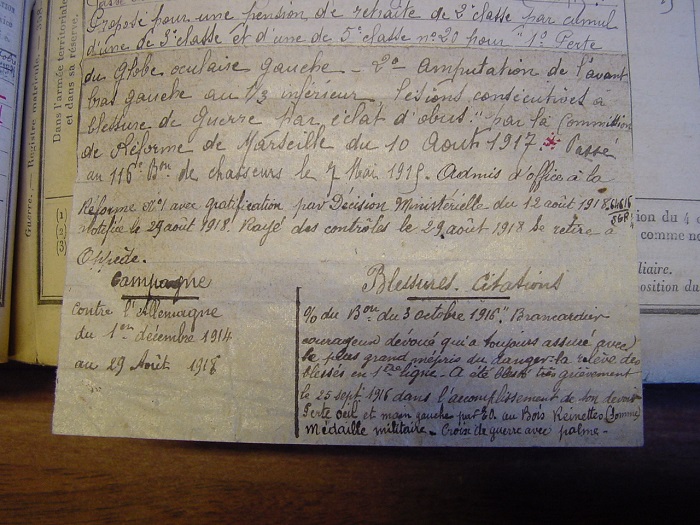 Proposé pour une pension de retraite de 2e classe par cumul
d'une de 3e classe et d'une de 5e classe no 20 pour "1o Perte
du Globe oculaire gauche - 2o amputation de l'avant
bras gauche au 1/3 inférieur lésions consécutives à
blessure de Guerre par éclat d'obus." par la Commission
de Réforme de Marseille du 10 Août 1917 * Passé
au 116e Bon de chasseurs le 7 Mai 1915. Admis d'office à la
Réforme no 1 avec gratification par Décision Ministérielle du 12 août 1918
notifiée le 29 août 1918. Rayé des contrôles le 29 août 1918 se retire à
Oppède.
Campagne
contre l'Allemagne
du 1er décembre 1914
au 29 Août 1918
Blessures. Citations
% du Bon du 3 octobre 1916. "Brancardier
courageux dévoué qui a toujours assuré avec
le plus grand mépris du danger la relève des
blessés en 1ère ligne. A été blessé très grièvement
le 25 sept 1916 dans l'accomplissement de son devoir
Perte oeil et main gauche par EO au Bois Reinettes (Somme)
Médaille militaire - Croix de guerre avec palme -
Guerre. - Registre matricule.
Dans l'armée territoriale
et dans sa réserve,
(1)
(2)
(3)
ion du 4
comme no
iliaire.
position du